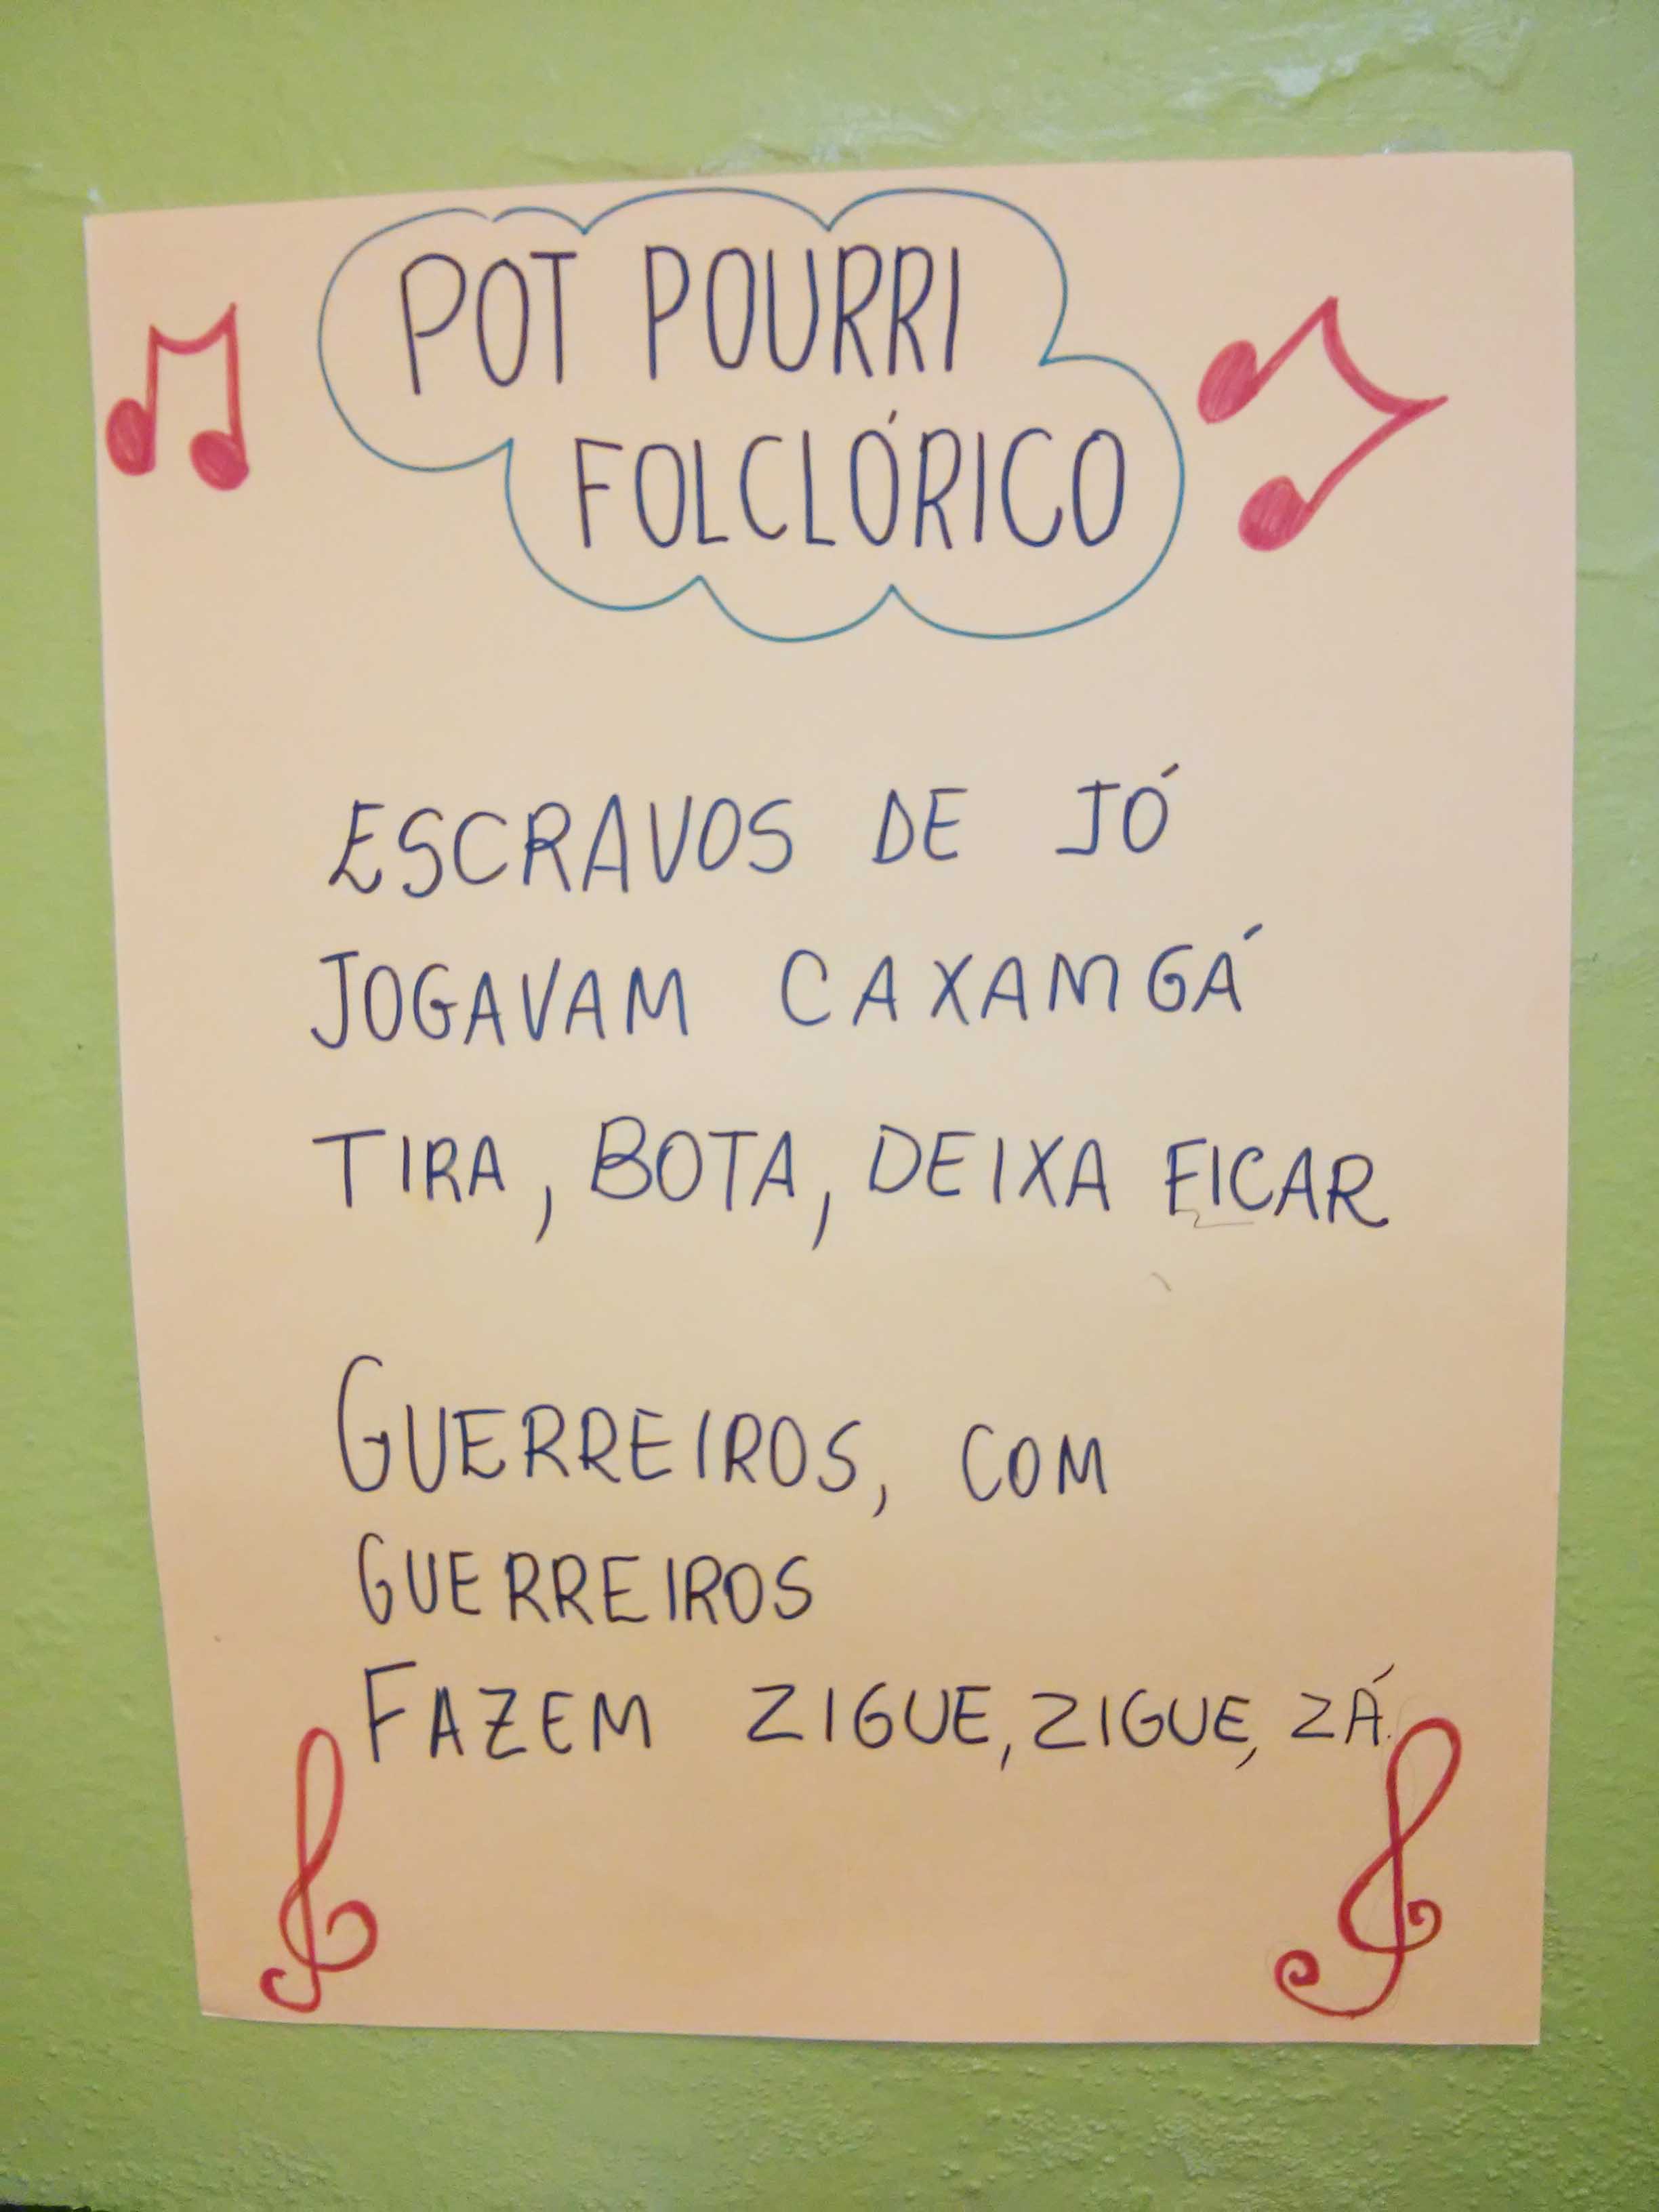 POT POURRI
FOLCLÓRICO
ESCRAVOS DE JÓ
JOGAVAM CAXAMGÁ
TIRA, BOTA, DEIXA FICAR
GUERREIROS, COM
GUERREIROS
FAZEM ZIGUE, ZIGUE, ZÁ.